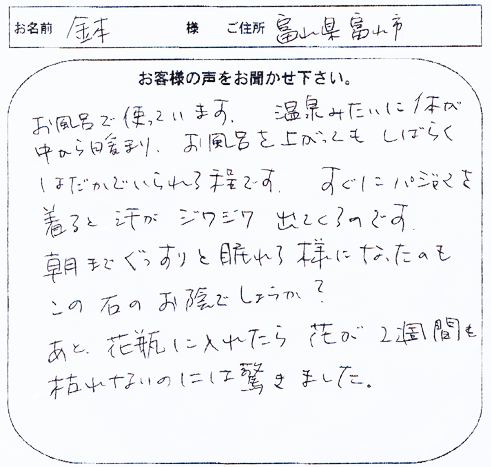 お名前 金本 様 ご住所 富山県富山市
お客様の声をお聞かせ下さい。
お風呂で使っています。 温泉みたいに体が
中から暖まり、お風呂を上がっても しばらく
はだかでいられる程です。 すぐにパジャマを
着ると汗が ジワジワ 出てくるのです。
朝までぐっすりと眠れる様になったのも
この石のお陰でしょうか?
あと、花瓶に入れたら 花が 2週間も
枯れないのには驚きました。